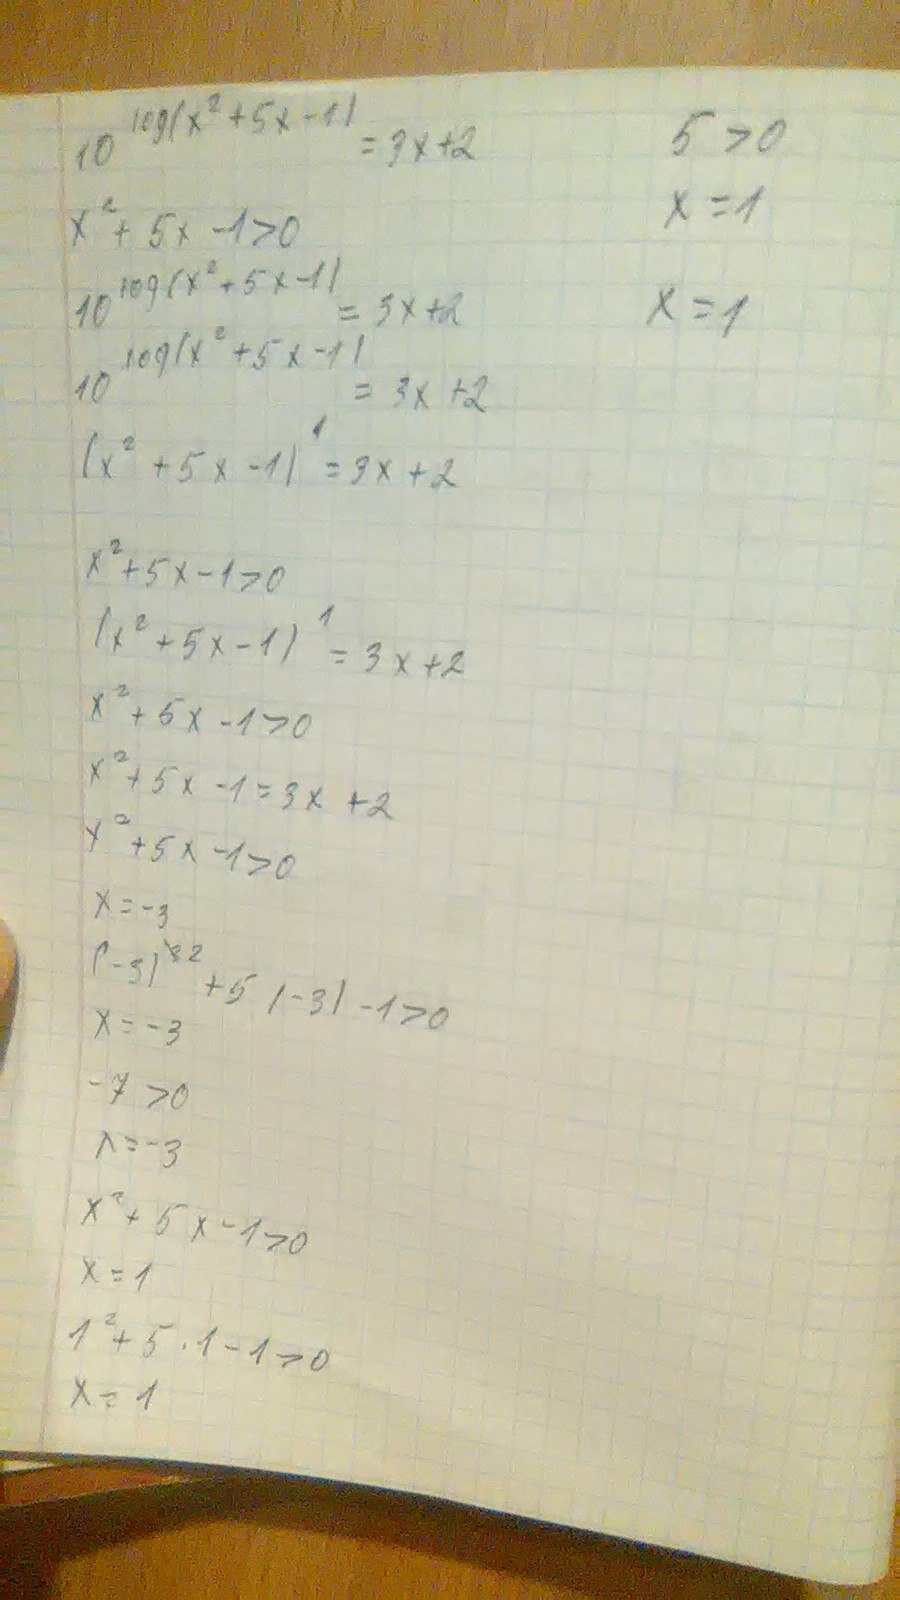 10^log(x²+5x-1) = 3x+2
x²+5x-1>0
10^log(x²+5x-1) = 3x+2
10^log(x²+5x-1) = 3x+2
(x²+5x-1)¹=3x+2
x²+5x-1>0
(x²+5x-1)¹=3x+2
x²+5x-1>0
x²+5x-1=3x+2
x²+5x-1>0
x=-3
(-3)²+5(-3)-1>0
x=-3
-7>0
x=-3
x²+5x-1>0
x=1
1²+5·1-1>0
x=1
5>0
x=1
x=1